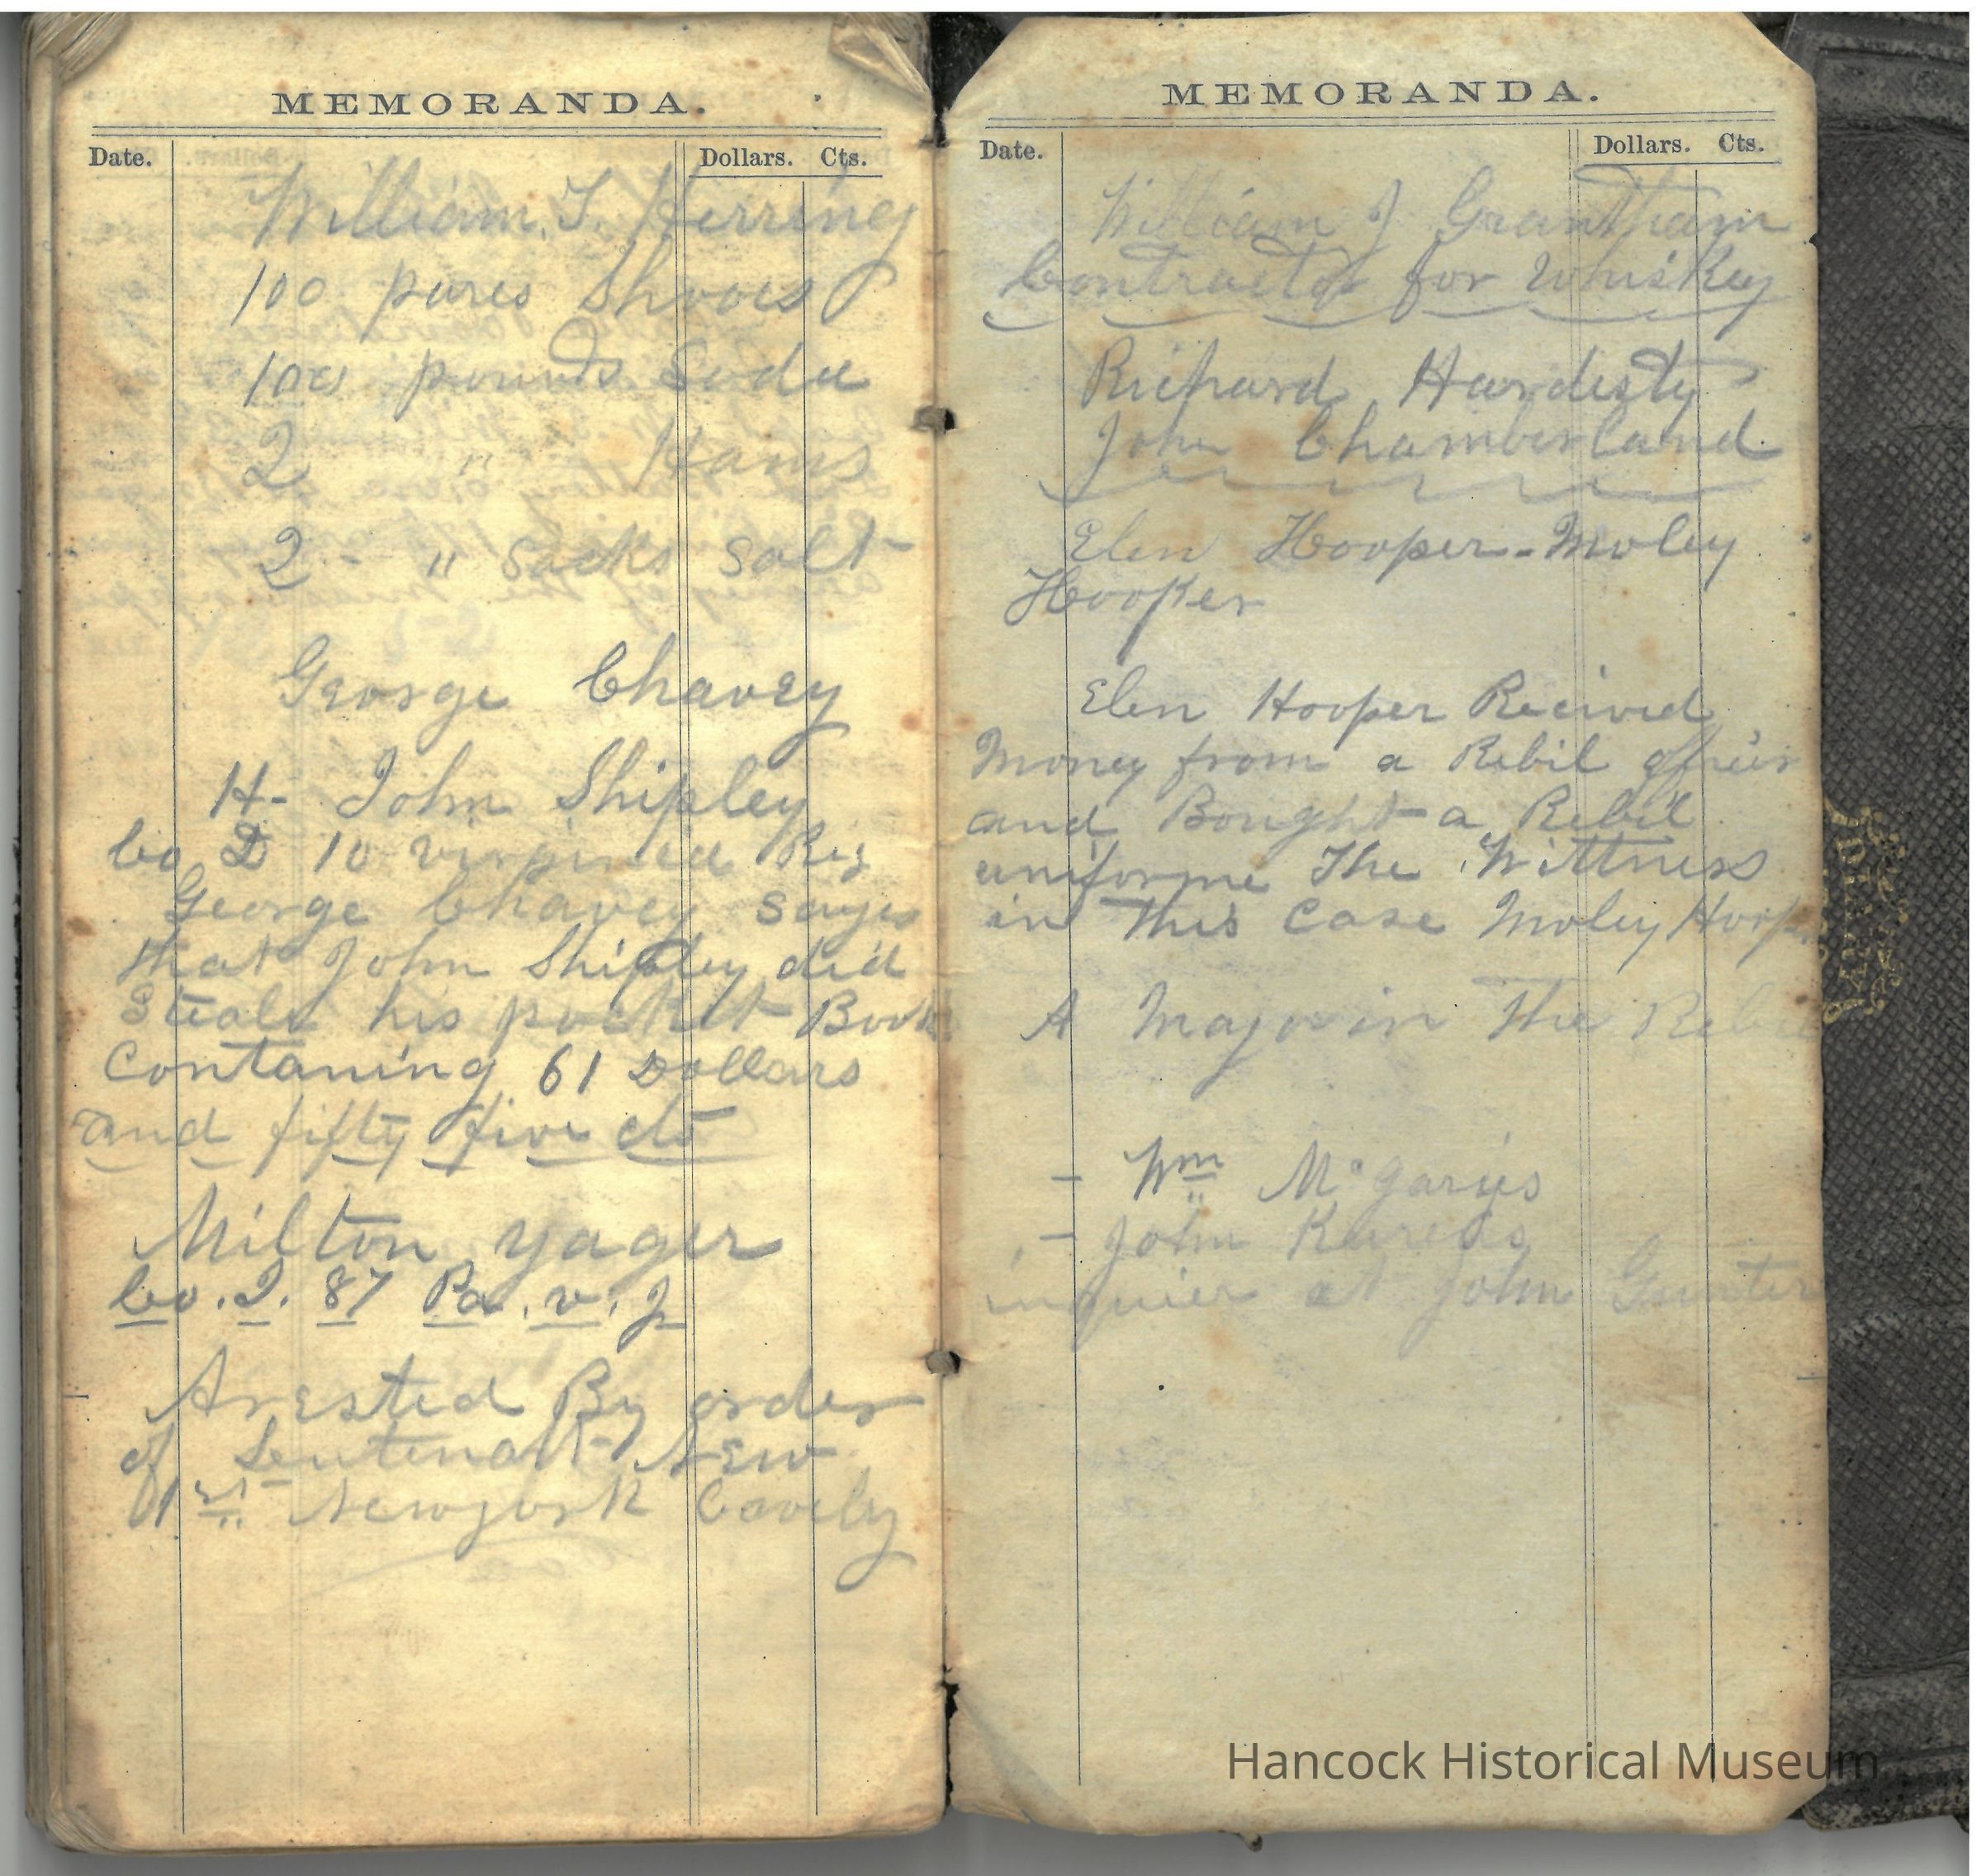 MEMORANDA.
Date. Dollars. Cts.
William. T. Herring
100 pares Shooes
100 pounds Soda
2 " Hams
2 - " Sacks Salt
George Chavey
H- John Shipley
Co D 10 virginia Reg
George Chavey Says
that John Shipley did
Steale his pockett Book
Containing 61 Dollars
and fifty five cts
Milton Yager
Co. I. 87 Pa. v. I
Arested By order
of Leutenant New
1st Newyork Cavely
MEMORANDA.
Date. Dollars. Cts.
William J Grantham
Contractor for Whiskey
Richard Hardesty
John Chamberland
Elen Hooper - Moley
Hooper
Elen Hooper Recived
Money from a Rebil officeir
and Bought a Rebil
uniforme The Wittness
in This Case Moley Hoop
A Major in The Rebil
- Wm McGaries
- John
inquier at John Gunter
Hancock Historical Museum